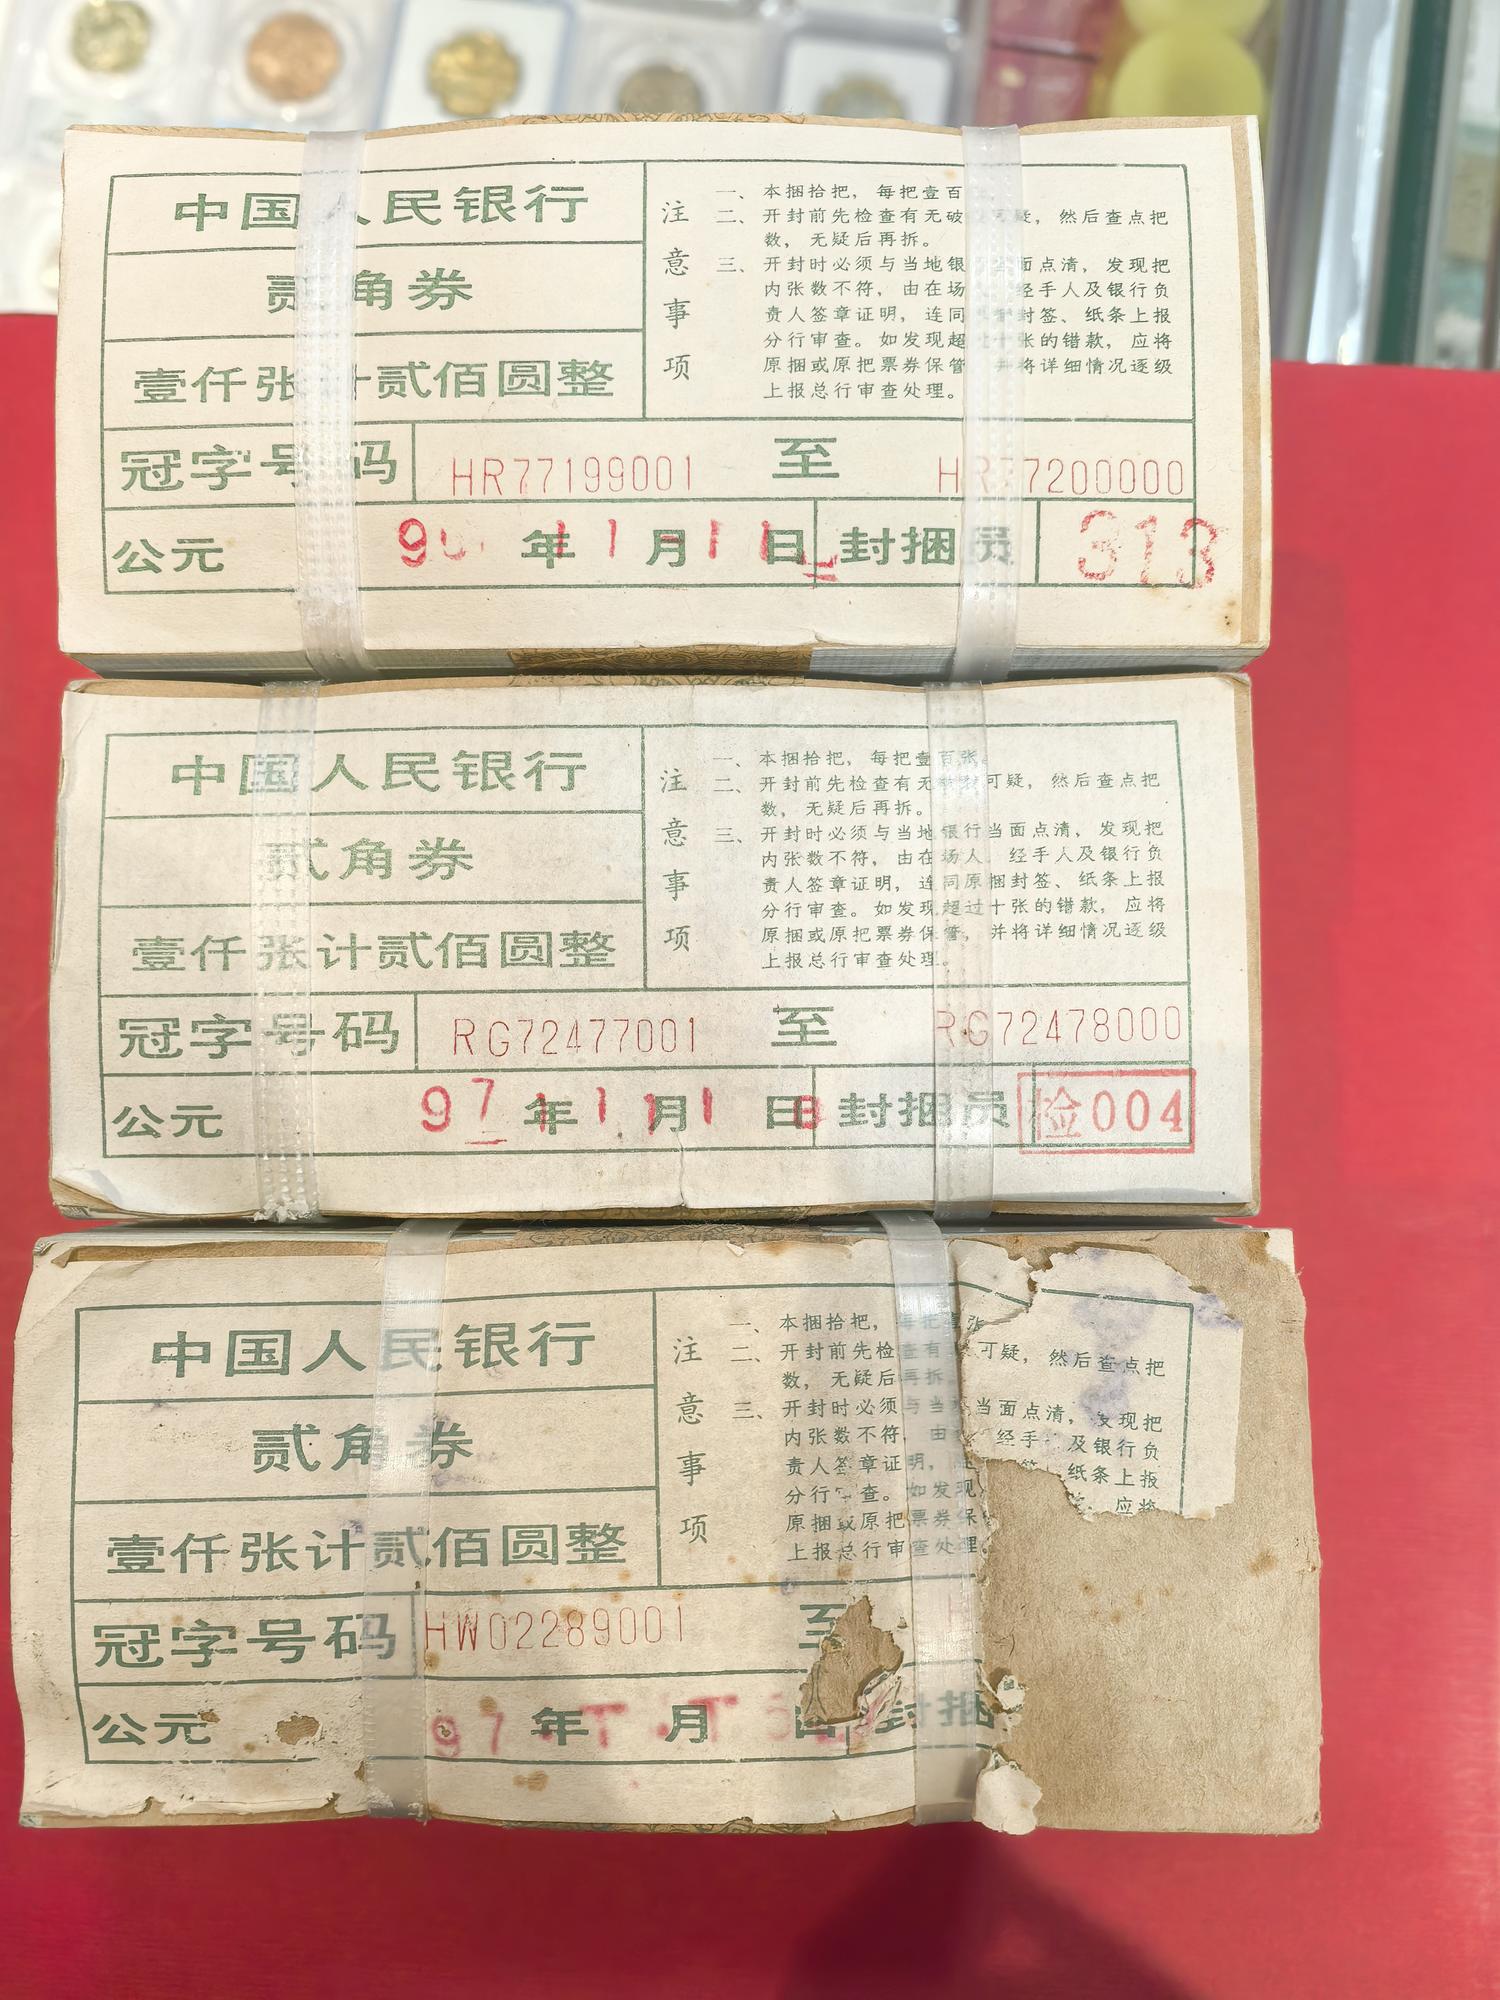 中国人民银行
贰角券
壹仟张计贰佰圆整
注意事项
一、本捆拾把，每把壹百
二、开封前先检查有无破 可疑，然后查点把
数，无疑后再拆。
三、开封时必须与当地银 当面点清，发现把
内张数不符，由在场 经手人及银行负
责人签章证明，连同 封签、纸条上报
分行审查。如发现超过十张的错款，应将
原捆或原把票券保管 并将详细情况逐级
上报总行审查处理。
冠字号码 HR77199001 至 HR77200000
公元 9 年 11 月 11 日 封捆员 313
中国人民银行
贰角券
壹仟张计贰佰圆整
注意事项
一、本捆拾把，每把壹百张。
二、开封前先检查有无破 可疑，然后查点把
数，无疑后再拆。
三、开封时必须与当地银行当面点清，发现把
内张数不符，由在场人、经手人及银行负
责人签章证明，连同原捆封签、纸条上报
分行审查。如发现超过十张的错款，应将
原捆或原把票券保管，并将详细情况逐级
上报总行审查处理。
冠字号码 RG72477001 至 RG72478000
公元 97 年 11 月 1 日 封捆员 检004
中国人民银行
贰角券
壹仟张计贰佰圆整
注意事项
一、本捆拾把，每把壹 张
二、开封前先检查有 可疑，然后查点把
数，无疑后再拆
三、开封时必须与当 当面点清，发现把
内张数不符，由 经手 及银行负
责人签章证明， 纸条上报
分行审查。如发现 应将
原捆或原把票券保
上报总行审查处理。
冠字号码 HW02289001 至 H
公元 97 年 月 日 封捆